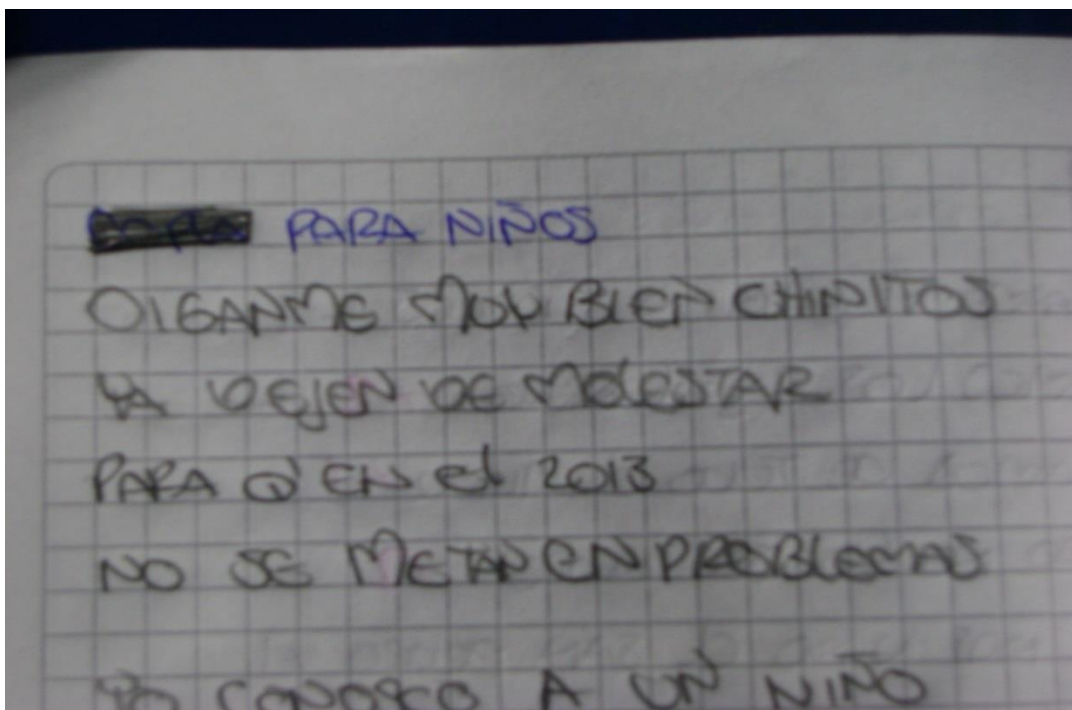 PARA NIÑOS
OIGANME MUY BIEN CHINITOS
YA DEJEN DE MOLESTAR
PARA Q' EN El 2013
NO SE METAN EN PROBLEMAS
YO CONOSCO A UN NIÑO